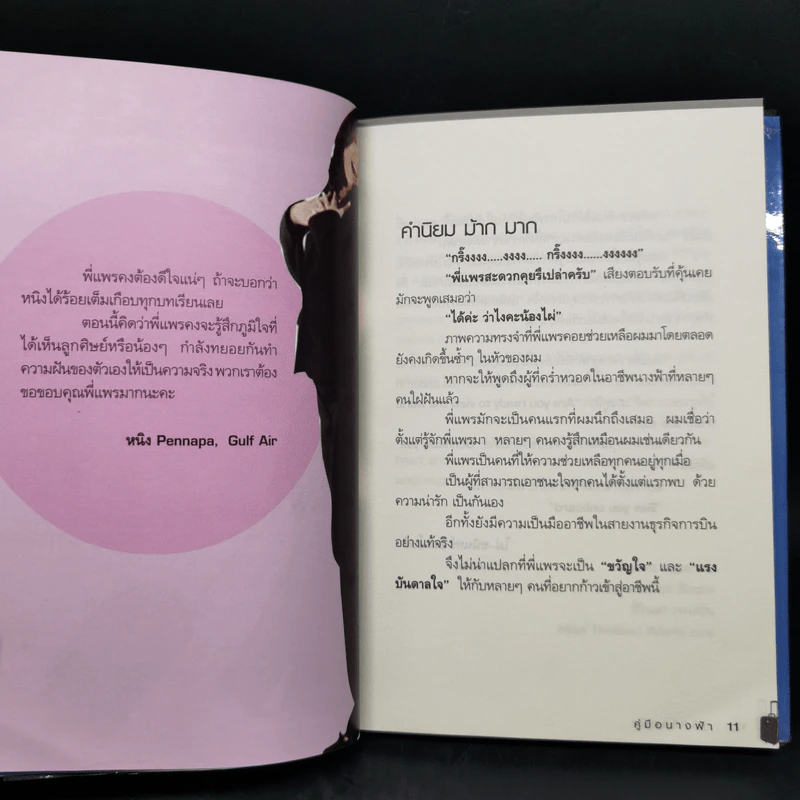 พี่แพรคงต้องดีใจแน่ๆ ถ้าจะบอกว่า
หนิงได้ร้อยเต็มเกือบทุกบทเรียนเลย
ตอนนี้คิดว่าพี่แพรคงจะรู้สึกภูมิใจที่
ได้เห็นลูกศิษย์หรือน้องๆ กำลังทยอยกันทำ
ความฝันของตัวเองให้เป็นความจริง พวกเราต้อง
ขอขอบคุณพี่แพรมากนะคะ
หนิง Pennapa, Gulf Air
คำนิยม ม้าก มาก
“กริ๊งงงง.....งงงง..... กริ๊งงงง......งงงงงง”
“พี่แพรสะดวกคุยรึเปล่าครับ” เสียงตอบรับที่คุ้นเคย
มักจะพูดเสมอว่า
“ได้ค่ะ ว่าไงคะน้องไผ่”
ภาพความทรงจำที่พี่แพรคอยช่วยเหลือผมมาโดยตลอด
ยังคงเกิดขึ้นซ้ำๆ ในหัวของผม
หากจะให้พูดถึงผู้ที่คร่ำหวอดในอาชีพนางฟ้าที่หลายๆ
คนใฝ่ฝันแล้ว
พี่แพรมักจะเป็นคนแรกที่ผมนึกถึงเสมอ ผมเชื่อว่า
ตั้งแต่รู้จักพี่แพรมา หลายๆ คนคงรู้สึกเหมือนผมเช่นเดียวกัน
พี่แพรเป็นคนที่ให้ความช่วยเหลือทุกคนอยู่ทุกเมื่อ
เป็นผู้ที่สามารถเอาชนะใจทุกคนได้ตั้งแต่แรกพบ ด้วย
ความน่ารัก เป็นกันเอง
อีกทั้งยังมีความเป็นมืออาชีพในสายงานธุรกิจการบิน
อย่างแท้จริง
จึงไม่น่าแปลกที่พี่แพรจะเป็น “ขวัญใจ” และ “แรง
บันดาลใจ” ให้กับหลายๆ คนที่อยากก้าวเข้าสู่อาชีพนี้
คู่มือนางฟ้า 11